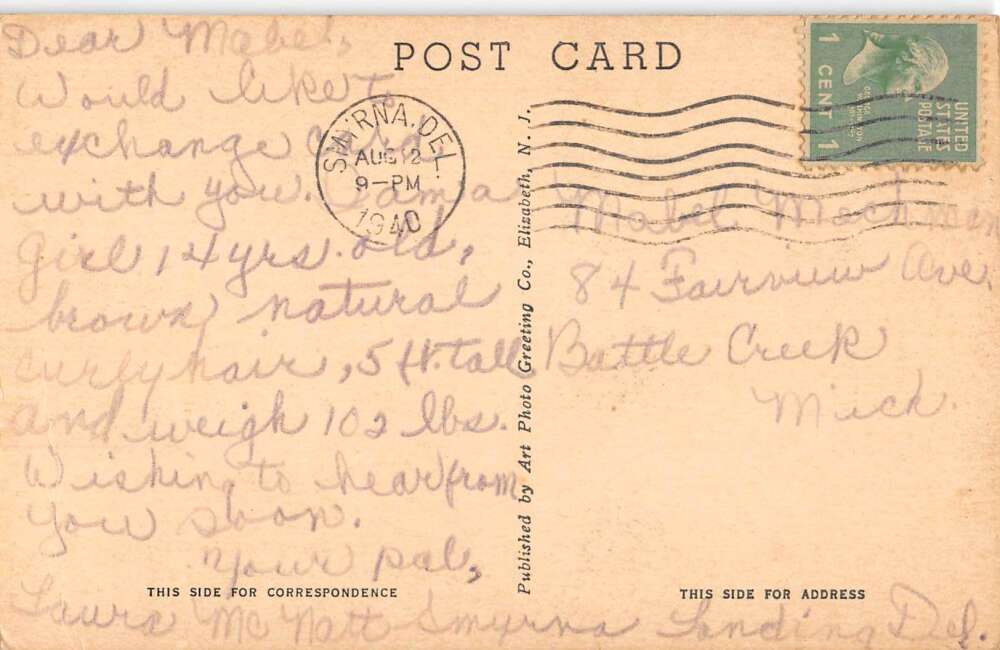 Dear Mabel,
Would like to
exchange cards
with you. I am a
girl 14 yrs. old,
brown, natural
curly hair, 5 ft. tall
and weigh 102 lbs.
Wishing to hear from
you soon.
Your pal,
Laura McNatt Smyrna Landing Del.
POST CARD
SMYRNA, DEL.
AUG 12
9-PM
1940
UNITED
STATES
POSTAGE
1 CENT 1
Published by Art Photo Greeting Co., Elizabeth, N. J.
Mabel
84 Fairview Ave.
Battle Creek
Mich
THIS SIDE FOR CORRESPONDENCE
THIS SIDE FOR ADDRESS